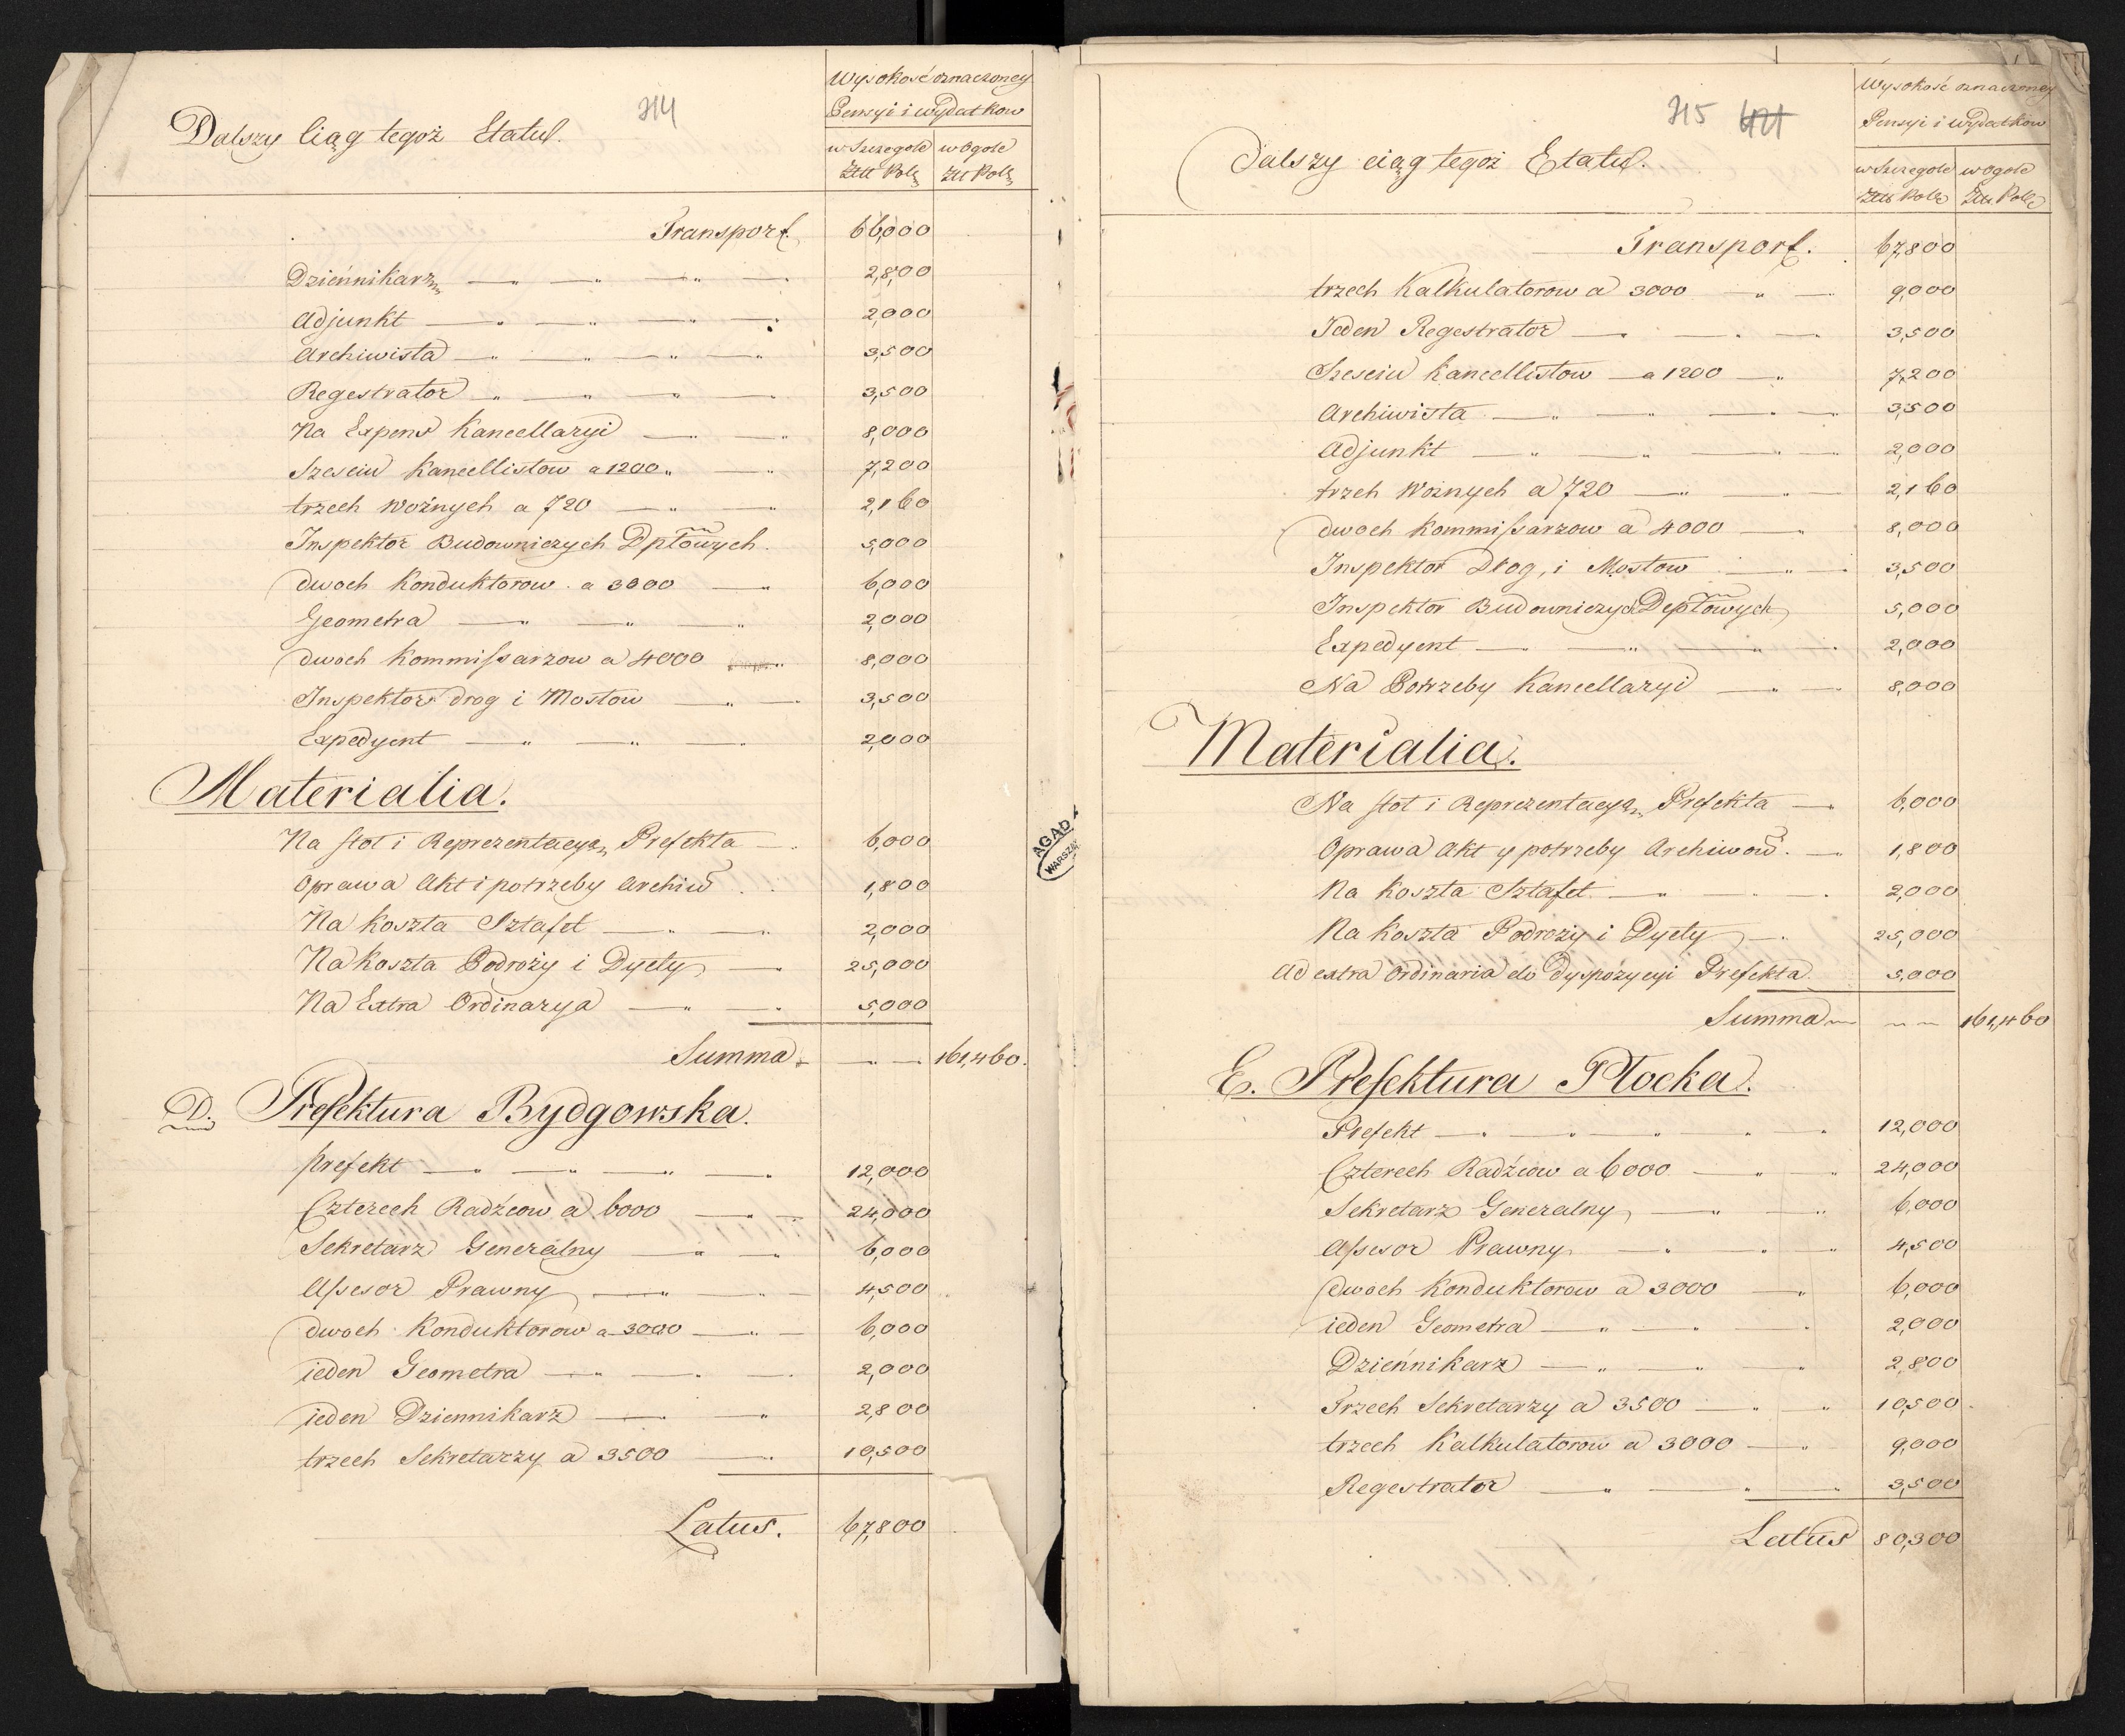 Wysokość oznaczoney
Pensyi i wydatkow
Dalszy Ciąg tegoż Etatu.
714
w Szczegole w Ogole
Złł Polz Złł Polz
Transport. 66,000
Dzieńnikarz 2,800
Adjunkt 2,000
Archiwista 3,500
Regestrator 3,500
Na Expens Kancellaryi 8,000
Szesciu Kancellistow a 1200 7,200
trzech Woźnych a 720 2,160
Inspektor Budowniczych Dptowych. 5,000
dwoch Konduktorow a 3000 6,000
Geometra 2,000
dwoch Kommissarzow a 4000 8,000
Inspektor drog i Mostow 3,500
Expedyent 2,000
Materialia.
Na stoł i Reprezentacyą Prefekta 6,000
Oprawa Akt i potrzeby Archiw 1,800
Na koszta Sztafet 2,000
Na koszta Podroży i Dyety 25,000
Na Extra Ordinarya 5,000
Summa 161,460.
D. Prefektura Bydgowska.
prefekt 12,000
Czterech Radźcow a 6000 24,000
Sekretarz Generalny 6,000
Assesor Prawny 4,500
dwoch Konduktorow a 3000 6,000
ieden Geometra 2,000
ieden Dziennikarz 2,800
trzech Sekretarzy a 3500 10,500
Latus. 67,800
AGAD
WARSZA
Wysokość oznaczoney
Pensyi i wydatkow
715 421
Dalszy ciąg tegoż Etatu.
w Szczegole w Ogole
Złł Polz Złł Polz
Transport. 67,800
trzech Kalkulatorow a 3000 9,000
Jeden Regestrator 3,500
Szesciu Kancellistow a 1200 7,200
Archiwista 3,500
Adjunkt 2,000
trzeh Woznych a 720 2,160
dwoch Kommissarzow a 4000 8,000
Inspektor Drog, i Mostow 3,500
Inspektor Budowniczych Deptowych 5,000
Expedyent 2,000
Na Potrzeby Kancellaryi 8,000
Materialia.
Na stoł i Reprezentacyą Prefekta 6,000
Oprawa Akt y potrzeby Archiwow. 1,800
Na koszta Sztafet. 2,000
Na koszta Podroży i Dyety 25,000
Ad extra Ordinaria do Dyspozycyi Prefekta 5,000
Summa 161,460
E. Prefektura Płocka.
Prefekt 12,000
Czterech Radźcow a 6000 24,000
Sekretarz Generalny 6,000
Assesor Prawny 4,500
dwoch Konduktorow a 3000 6,000
ieden Geometra 2,000
Dzieńnikarz 2,800
Trzech Sekretarzy a 3500 10,500
trzech Kalkulatorow a 3000 9,000
Regestrator 3,500
Latus 80,300